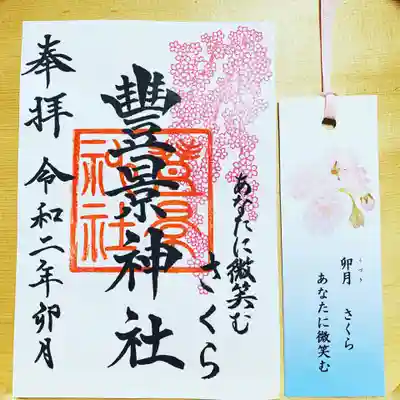 さくら
あなたに微笑む
豊景神社
豊景
神社
奉拝 令和二年卯月
卯月 さくら
うづき
あなたに微笑む